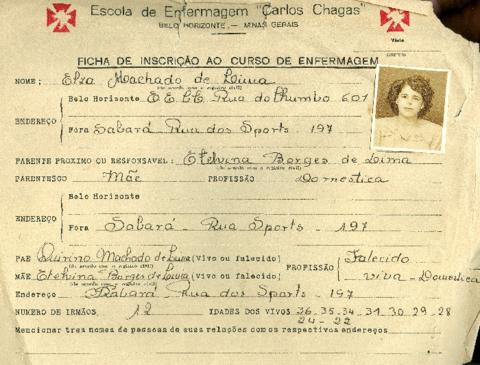 Escola de Enfermagem "Carlos Chagas"
BELO HORIZONTE — MINAS GERAIS
FICHA DE INSCRIÇÃO AO CURSO DE ENFERMAGEM
NOME: Elza Machado de Lima
(De acordo com o registro civil)
Belo Horizonte Rua do Chumbo 601
ENDEREÇO
Fora Sabará Rua dos Sports - 197
PARENTE PROXIMO OU RESPONSAVEL: Etelvina Borges de Lima
(De acordo com o registro civil)
PARENTESCO Mãe PROFISSÃO Domestica
Belo Horizonte
ENDEREÇO
Fora Sabará - Rua Sports - 197
PAE Quirino Machado de Lima (Vivo ou falecido) Falecido
(De acordo com o registro civil)
PROFISSÃO
MÃE Etelvina Borges de Lima (Vivo ou falecido) viva - Domestica
(De acordo com o registro civil)
Endereço Sabará - Rua dos Sports - 197
NUMERO DE IRMÃOS 12 IDADES DOS VIVOS 36-35-34-31-30-29-28
24-22
Mencionar tres nomes de pessoas de suas relações com os respectivos endereços